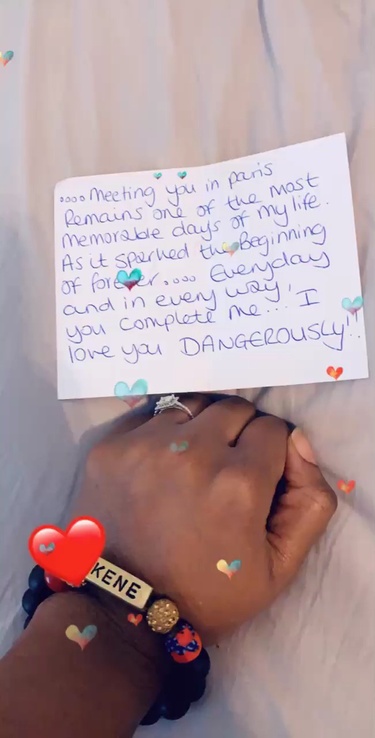 ....Meeting you in paris
Remains one of the most
memorable days of my life.
As it sparked the Beginning
of forever.... Everyday
and in every way,
you complete me... I
love you DANGEROUSLY!!.
KENE